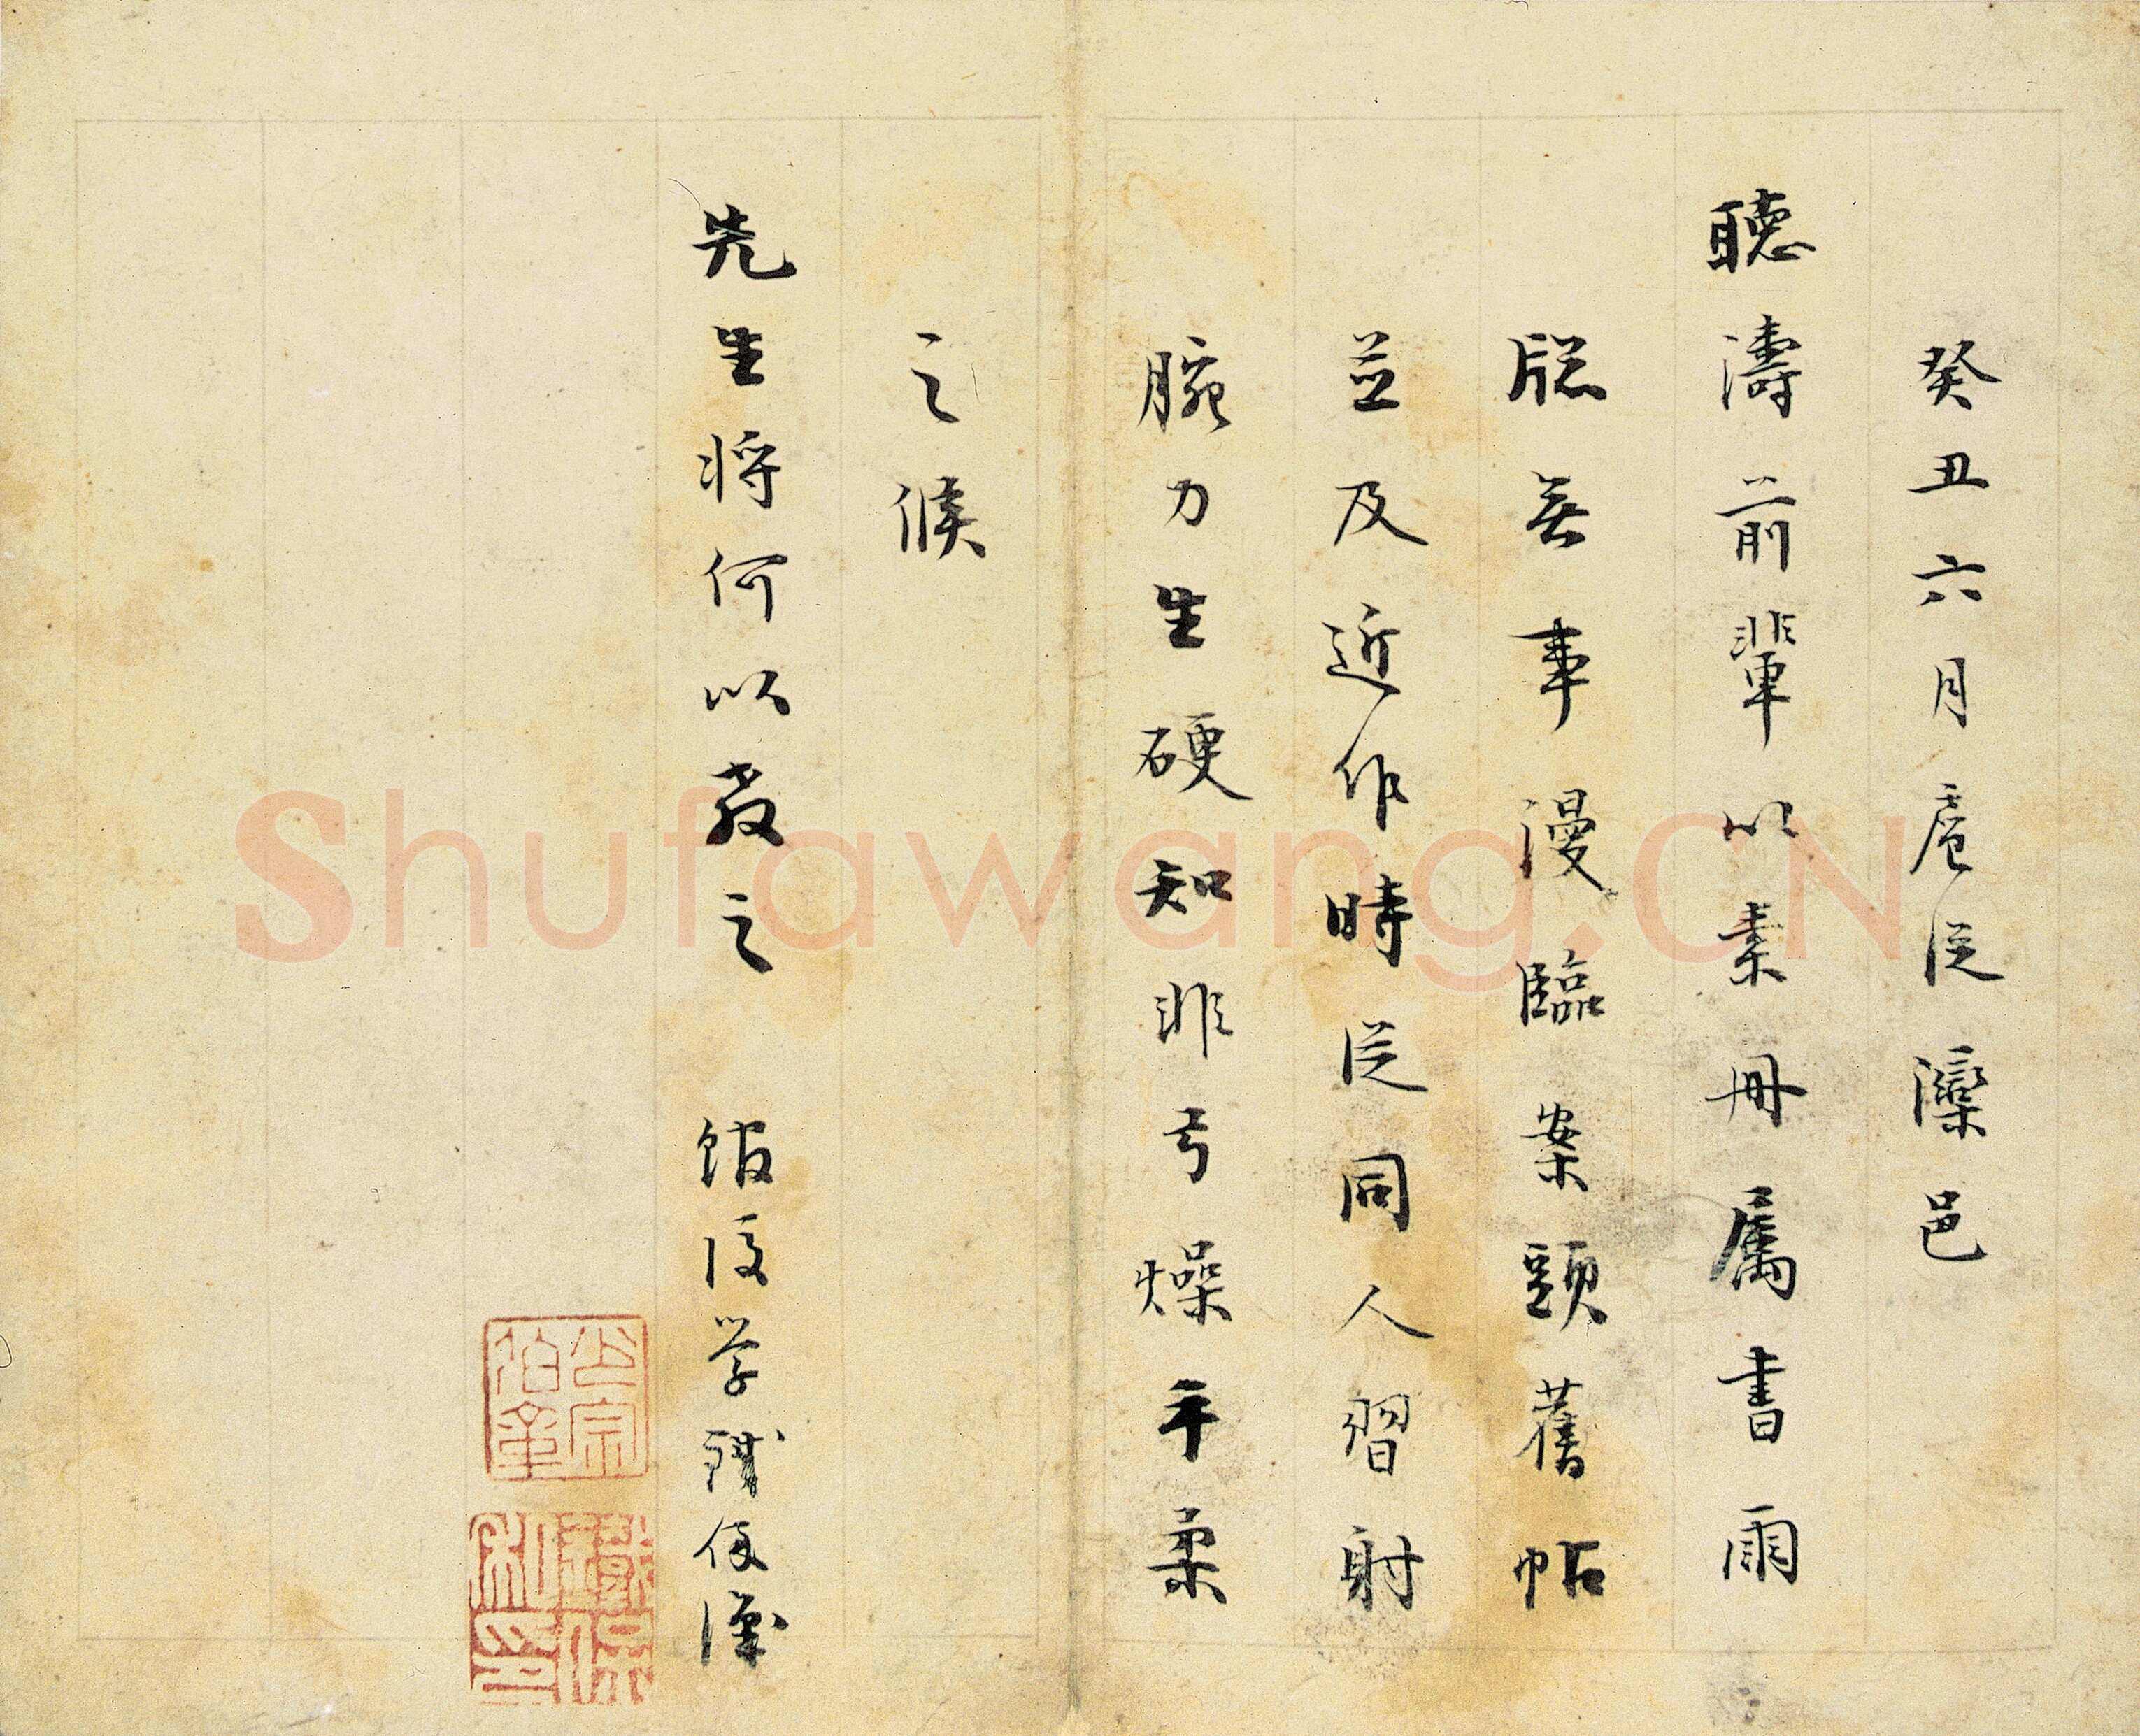 癸丑六月扈從灤邑
聽濤前輩以素冊屬書雨
牕無事漫臨案頭舊帖
並及近作時從同人習射
腕力生硬知非弓燥手柔
之候
先生將何以教之 館後学鐵保
少宗伯章
鐵保私印
Shufawang.CN